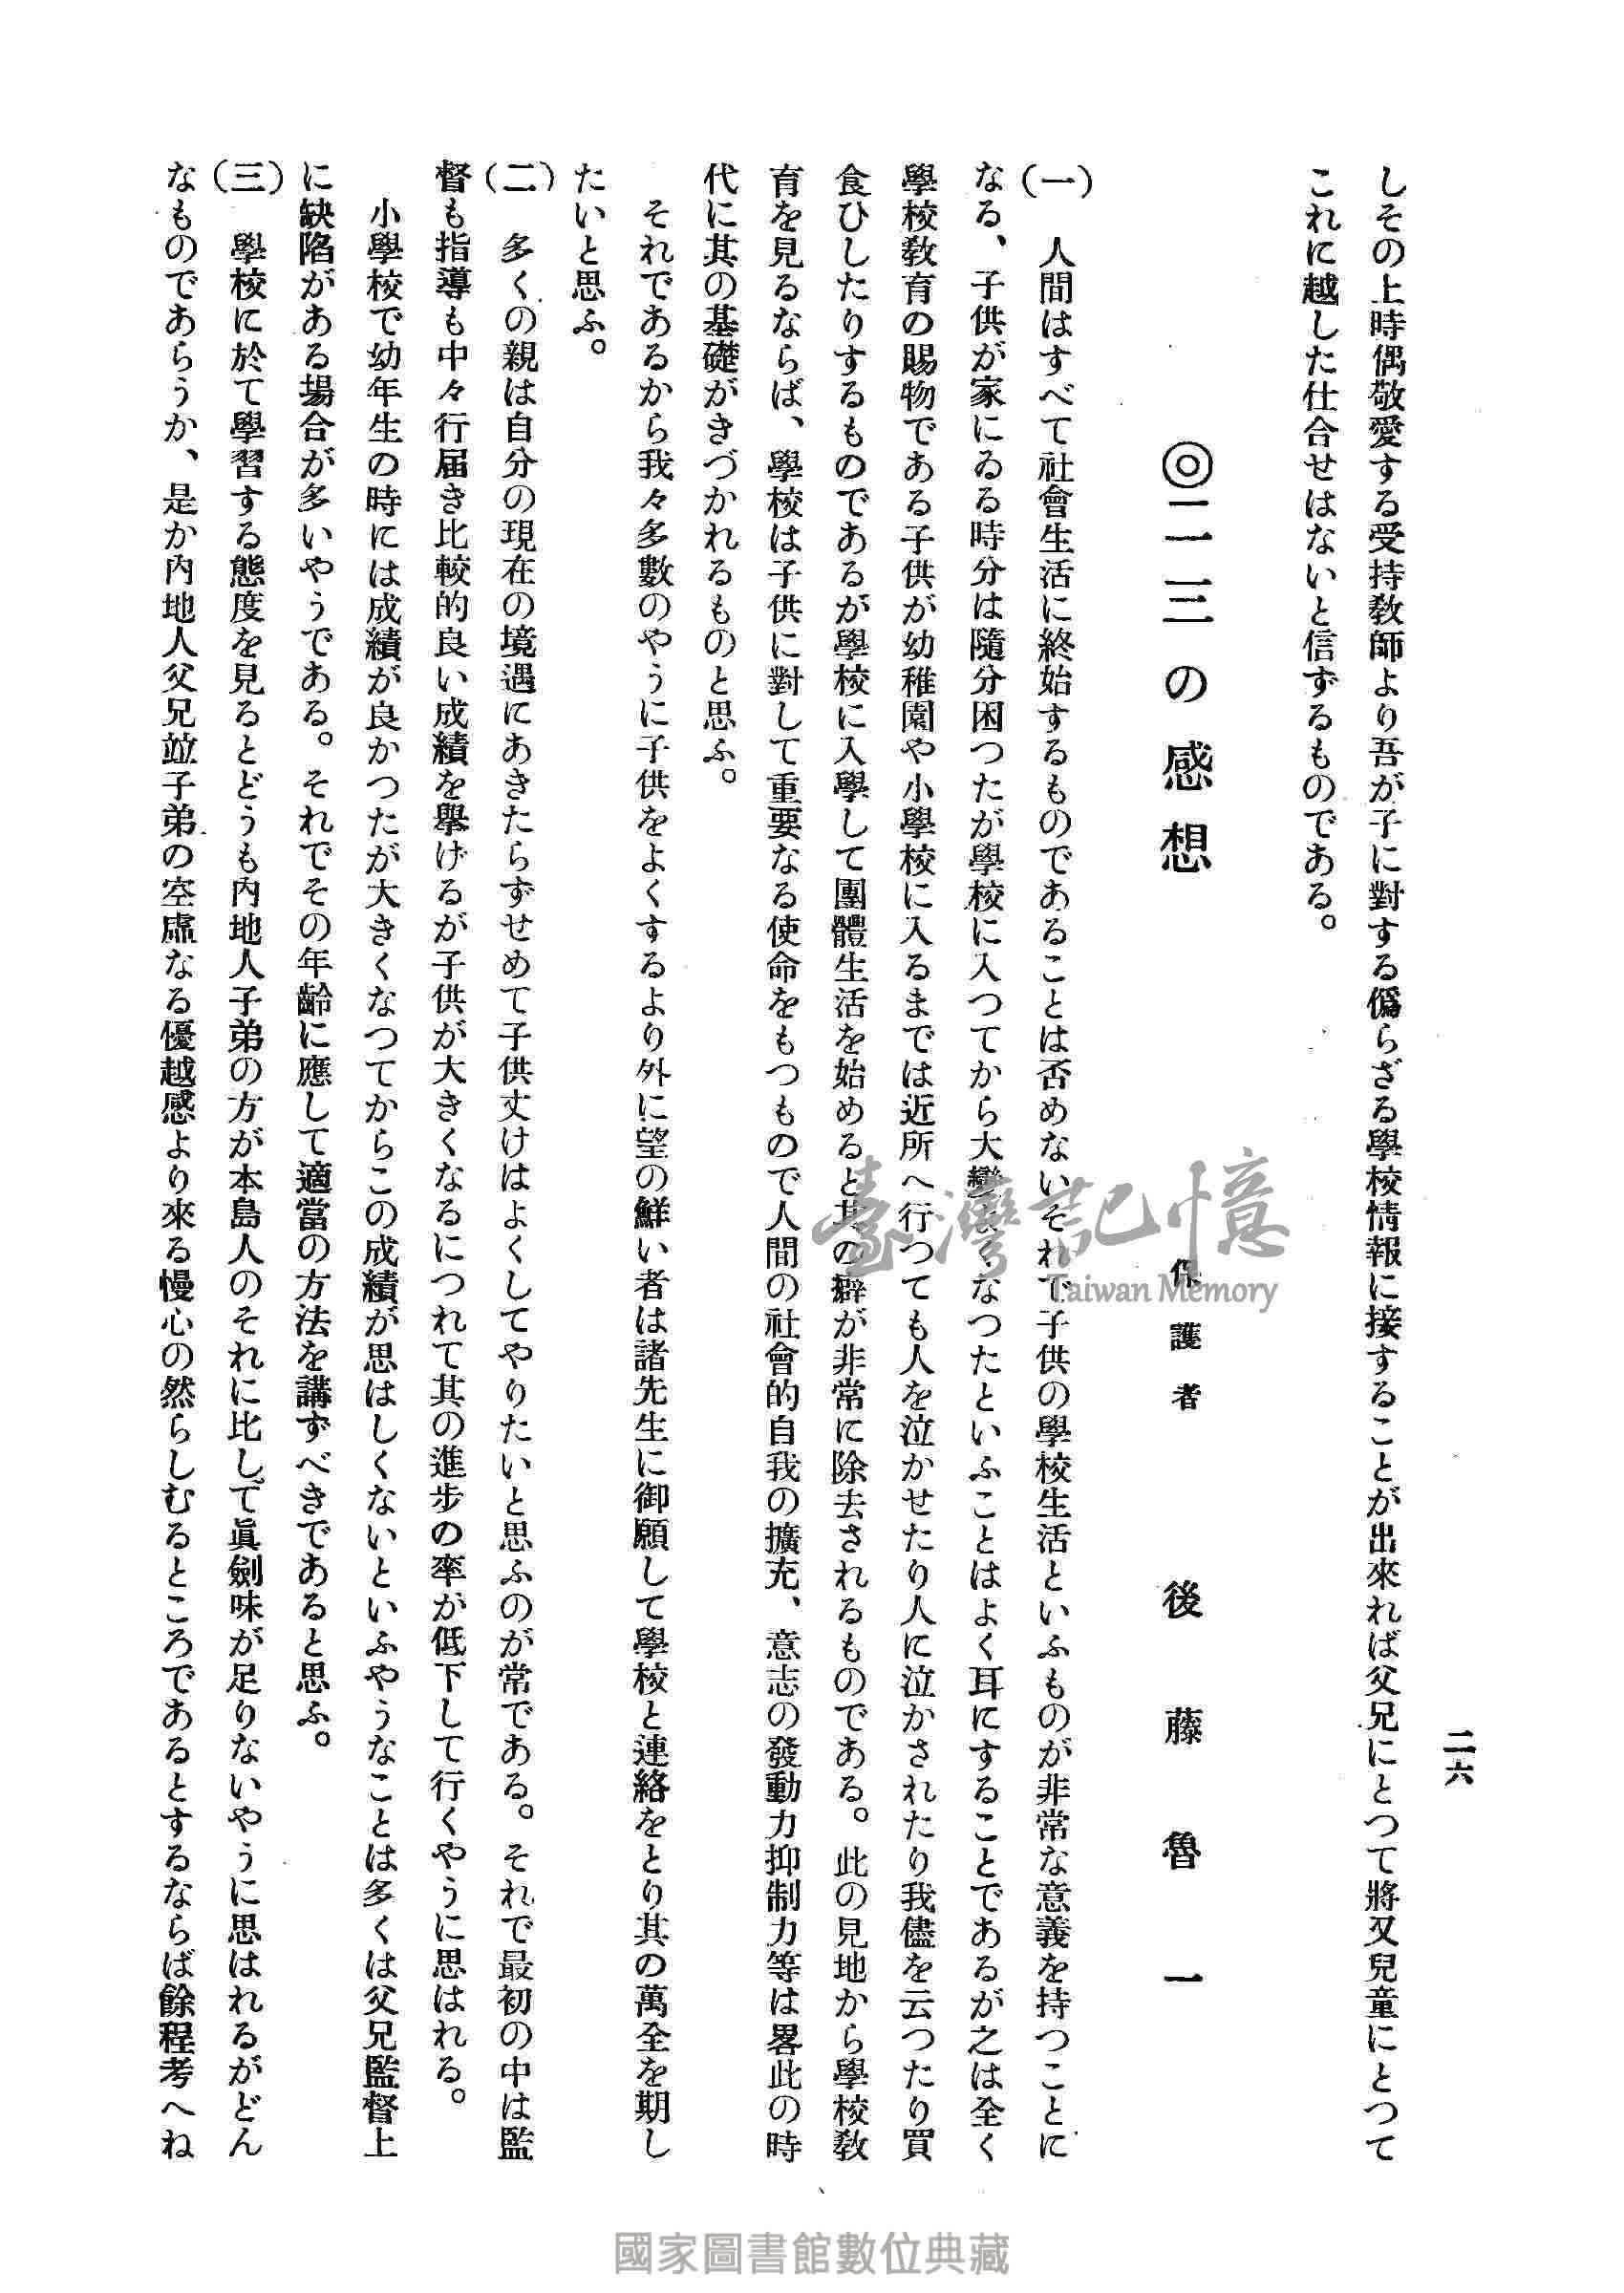 二六
しその上時偶敬愛する受持敎師より吾が子に對する僞らざる學校情報に接することが出來れば父兄にとつて將又兒童にとつて
これに越した仕合せはないと信ずるものである。
◎二三の感想
保護者 後藤魯一
(一) 人間はすべて社會生活に終始するものであることは否めないそれで子供の學校生活といふものが非常な意義を持つことに
なる、子供が家にゐる時分は隨分困つたが學校に入つてから大變よくなつたといふことはよく耳にすることであるが之は全く
學校敎育の賜物である子供が幼稚園や小學校に入るまでは近所へ行つても人を泣かせたり人に泣かされたり我儘を云つたり買
食ひしたりするものであるが學校に入學して團體生活を始めると其の癖が非常に除去されるものである。此の見地から學校敎
育を見るならば、學校は子供に對して重要なる使命をもつもので人間の社會的自我の擴充、意志の發動力抑制力等は畧此の時
代に其の基礎がきづかれるものと思ふ。
それであるから我々多數のやうに子供をよくするより外に望の鮮い者は諸先生に御願して學校と連絡をとり其の萬全を期し
たいと思ふ。
(二) 多くの親は自分の現在の境遇にあきたらずせめて子供丈けはよくしてやりたいと思ふのが常である。それで最初の中は監
督も指導も中々行届き比較的良い成績を擧げるが子供が大きくなるにつれて其の進步の率が低下して行くやうに思はれる。
小學校で幼年生の時には成績が良かつたが大きくなつてからこの成績が思はしくないといふやうなことは多くは父兄監督上
に缺陷がある場合が多いやうである。それでその年齡に應して適當の方法を講ずべきであると思ふ。
(三) 學校に於て學習する態度を見るとどうも內地人子弟の方が本島人のそれに比して眞劍味が足りないやうに思はれるがどん
なものであらうか、是か內地人父兄竝子弟の空虛なる優越感より來る慢心の然らしむるところであるとするならば餘程考へね
臺灣記憶
Taiwan Memory
國家圖書館數位典藏